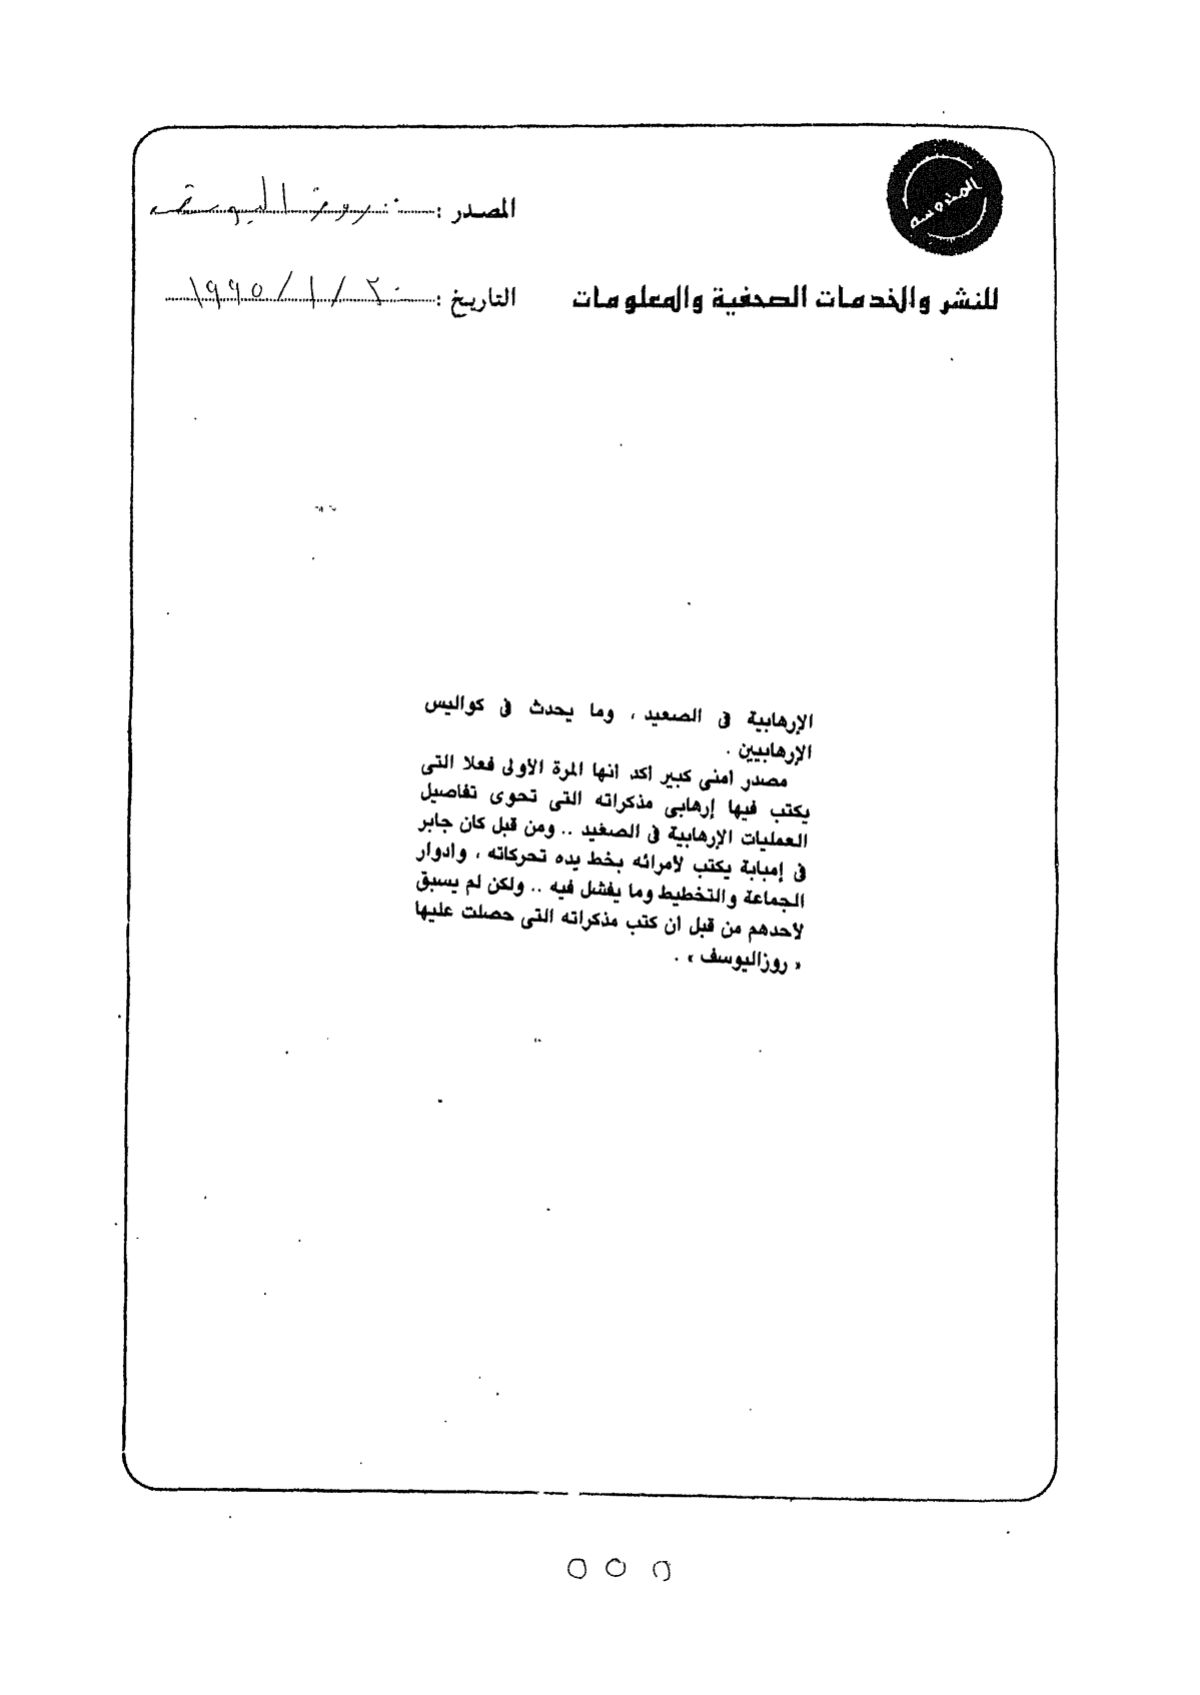 المحروسة
المصدر : روز اليوسف
للنشر والخدمات الصحفية والمعلومات
التاريخ : ٣٠ / ١ / ١٩٩٥
الإرهابية فى الصعيد ، وما يحدث فى كواليس
الإرهابيين .
مصدر امنى كبير اكد انها المرة الأولى فعلا التى
يكتب فيها إرهابى مذكراته التى تحوى تفاصيل
العمليات الإرهابية فى الصعيد .. ومن قبل كان جابر
فى إمبابة يكتب لأمرائه بخط يده تحركاته ، وادوار
الجماعة والتخطيط وما يفشل فيه .. ولكن لم يسبق
لأحدهم من قبل ان كتب مذكراته التى حصلت عليها
« روزاليوسف » .
٥٥٥